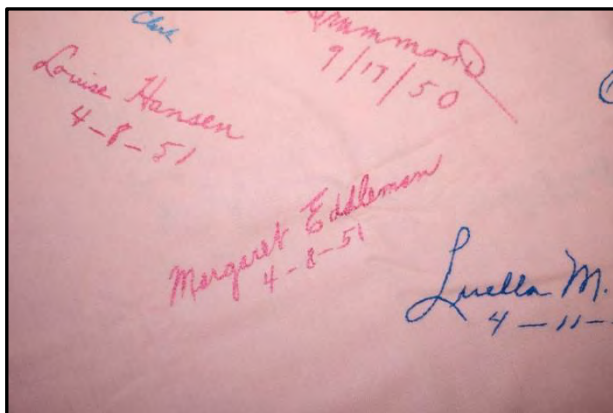 Clark
Drummond
9/17/50
Louise Hansen
4-8-51
Margaret Eddleman
4-8-51
Luella M.
4-11-